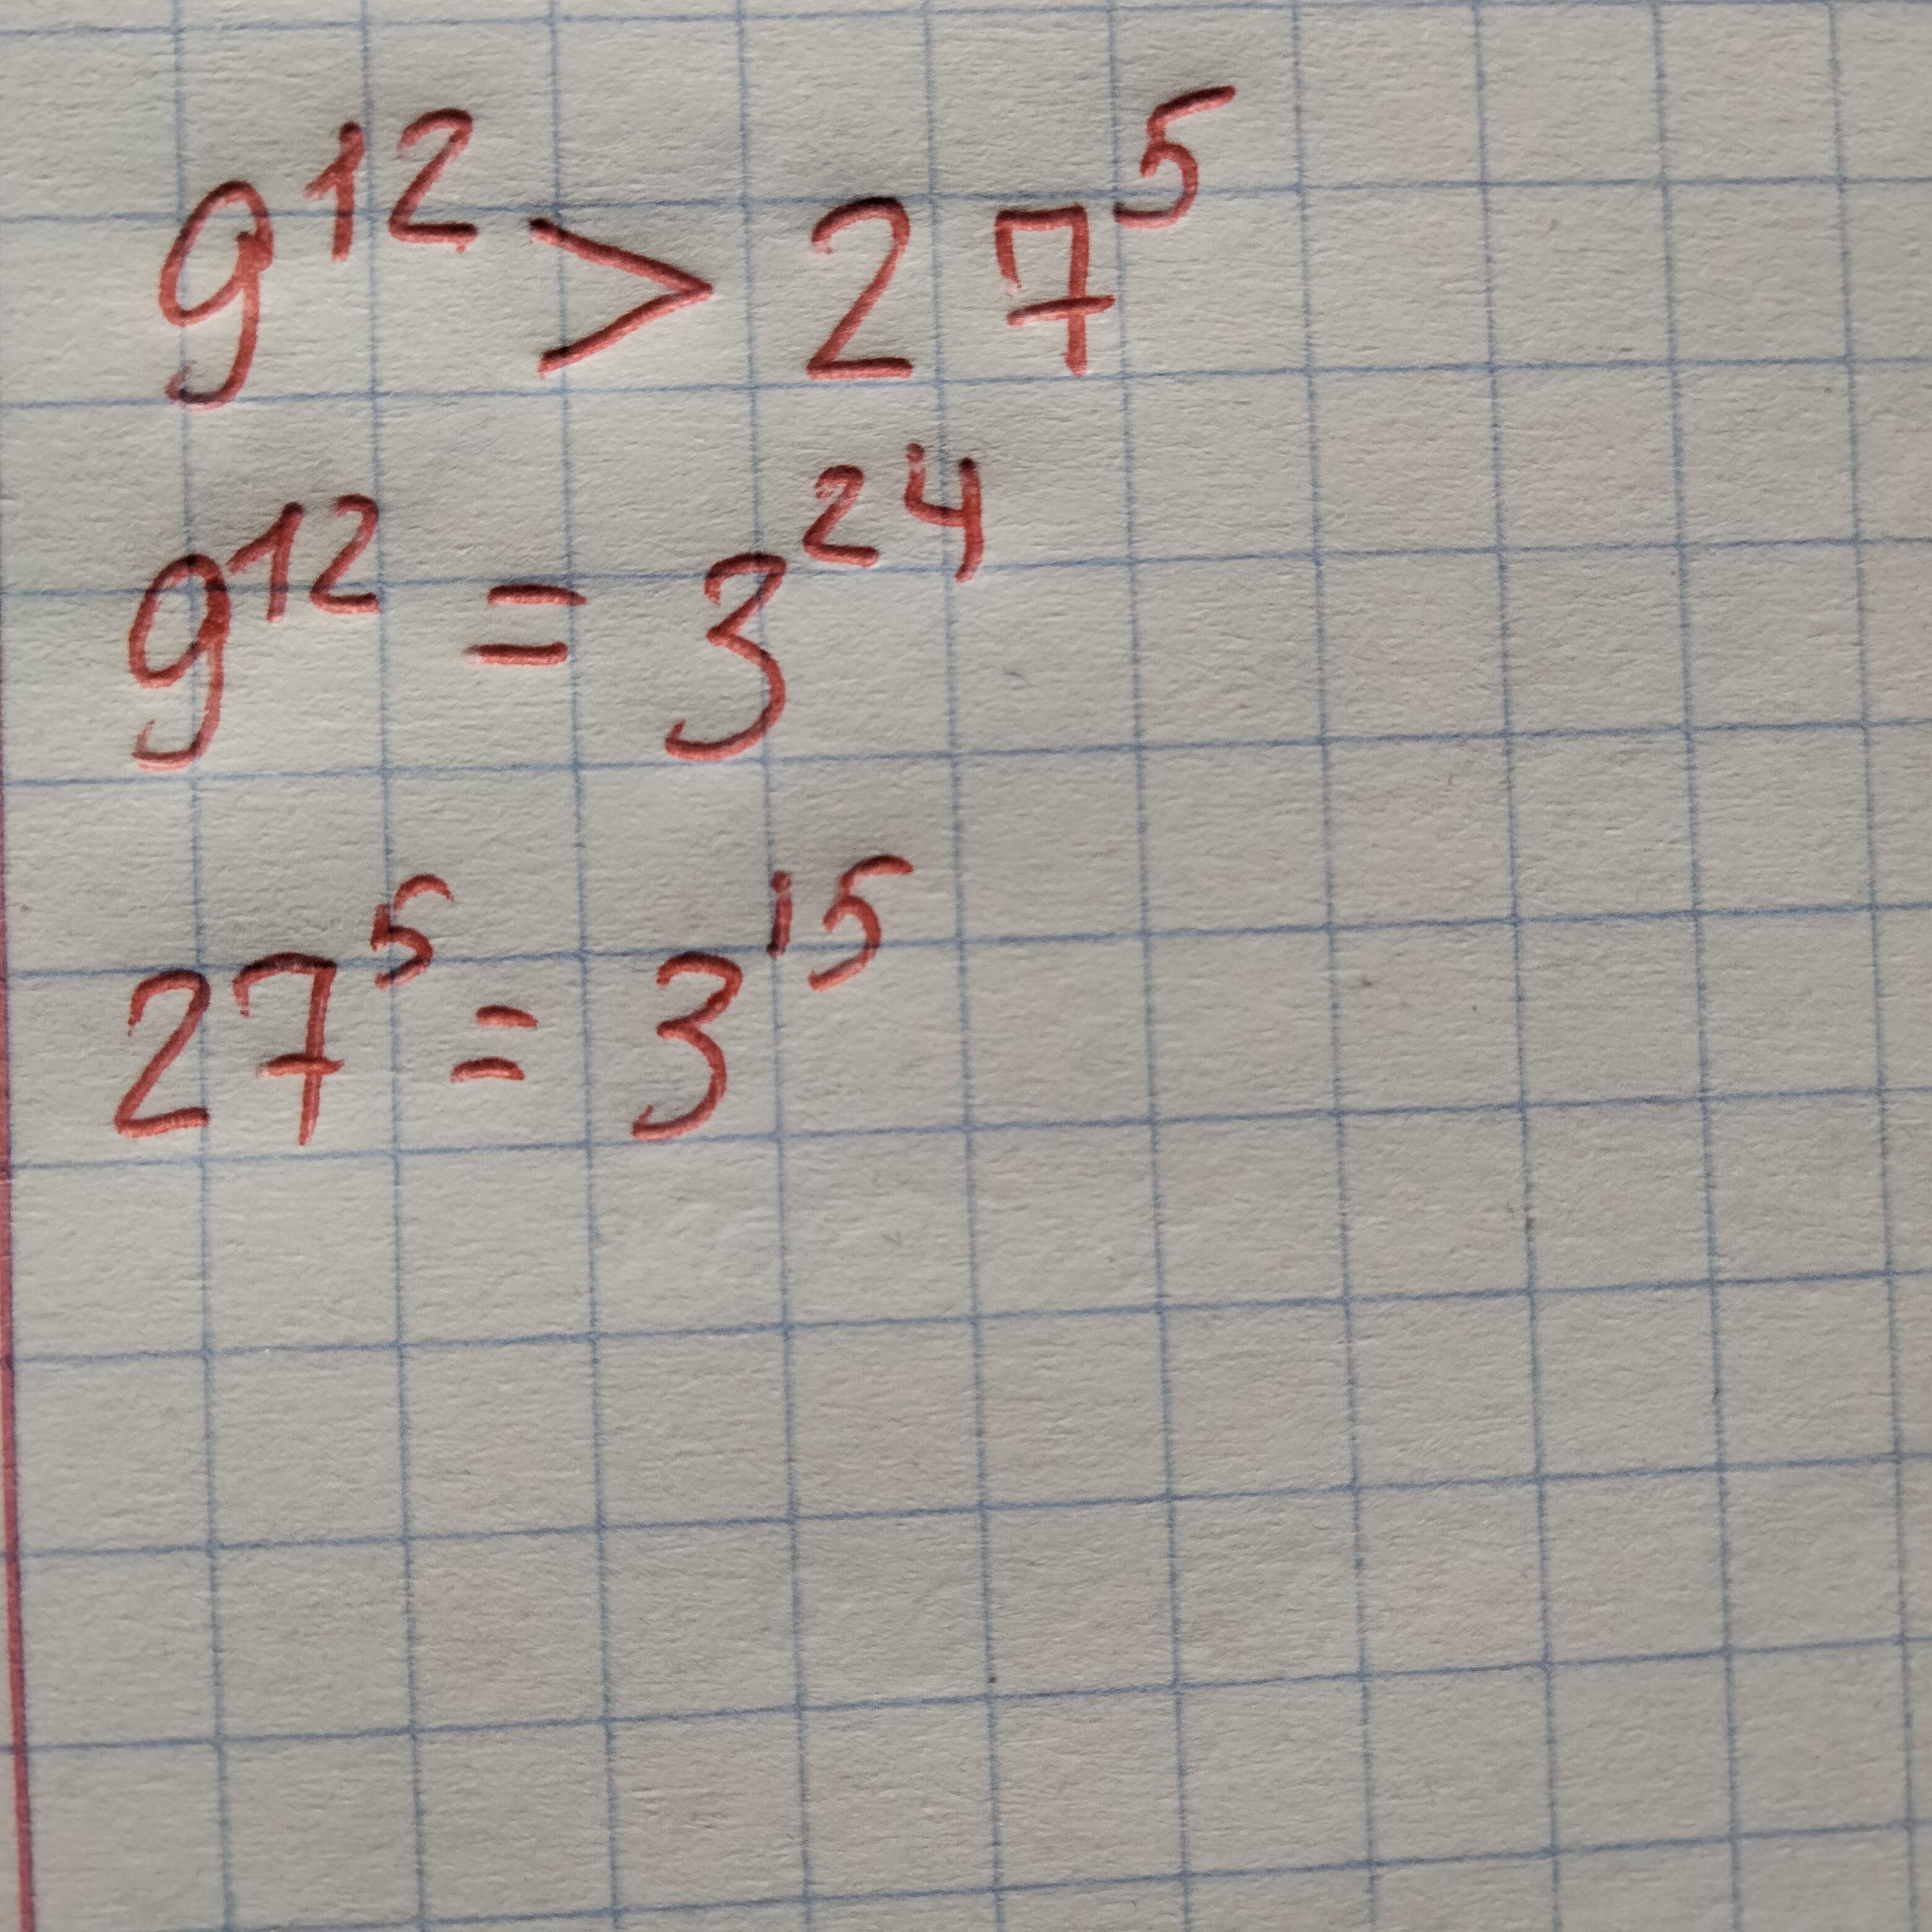 9¹² > 27⁵
9¹² = 3²⁴
27⁵ = 3¹⁵